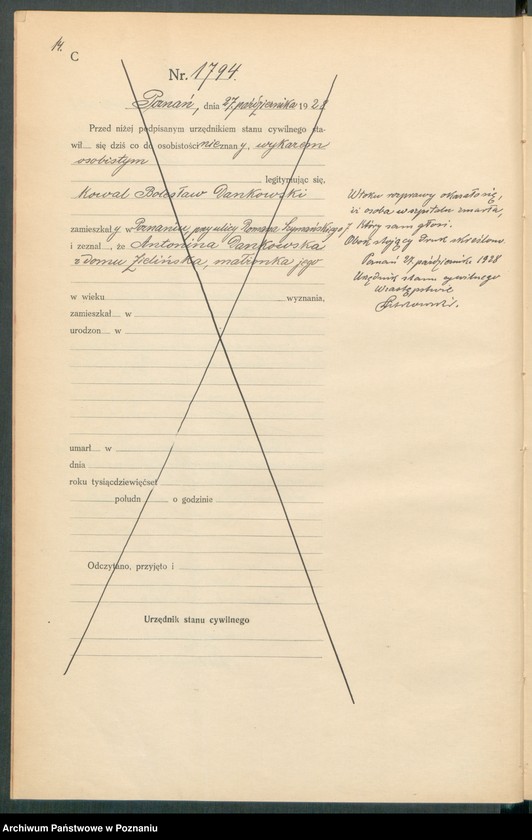 14.
C
Nr. 1794.
Poznań, dnia 27 października 1928
Przed niżej podpisanym urzędnikiem stanu cywilnego sta-
wił się dziś co do osobistości nieznany, wykazem
osobistym
legitymując się,
Kowal Bolesław Dankowski
zamieszkały w Poznaniu przy ulicy Romana Szymańskiego 7
i zeznał, że Antonina Dankowska
z domu Zielińska, małżonka jego
w wieku wyznania,
zamieszkał w
urodzon w
umarł w
dnia
roku tysiącdziewięćset
połudn o godzinie
Odczytano, przyjęto i
Urzędnik stanu cywilnego
W toku rozprawy okazało się,
iż osoba w szpitalu zmarła,
który sam głosi.
Obok stojący druk skreślono.
Poznań 27 październik 1928
Urzędnik stanu cywilnego
W zastępstwie
Archiwum Państwowe w Poznaniu